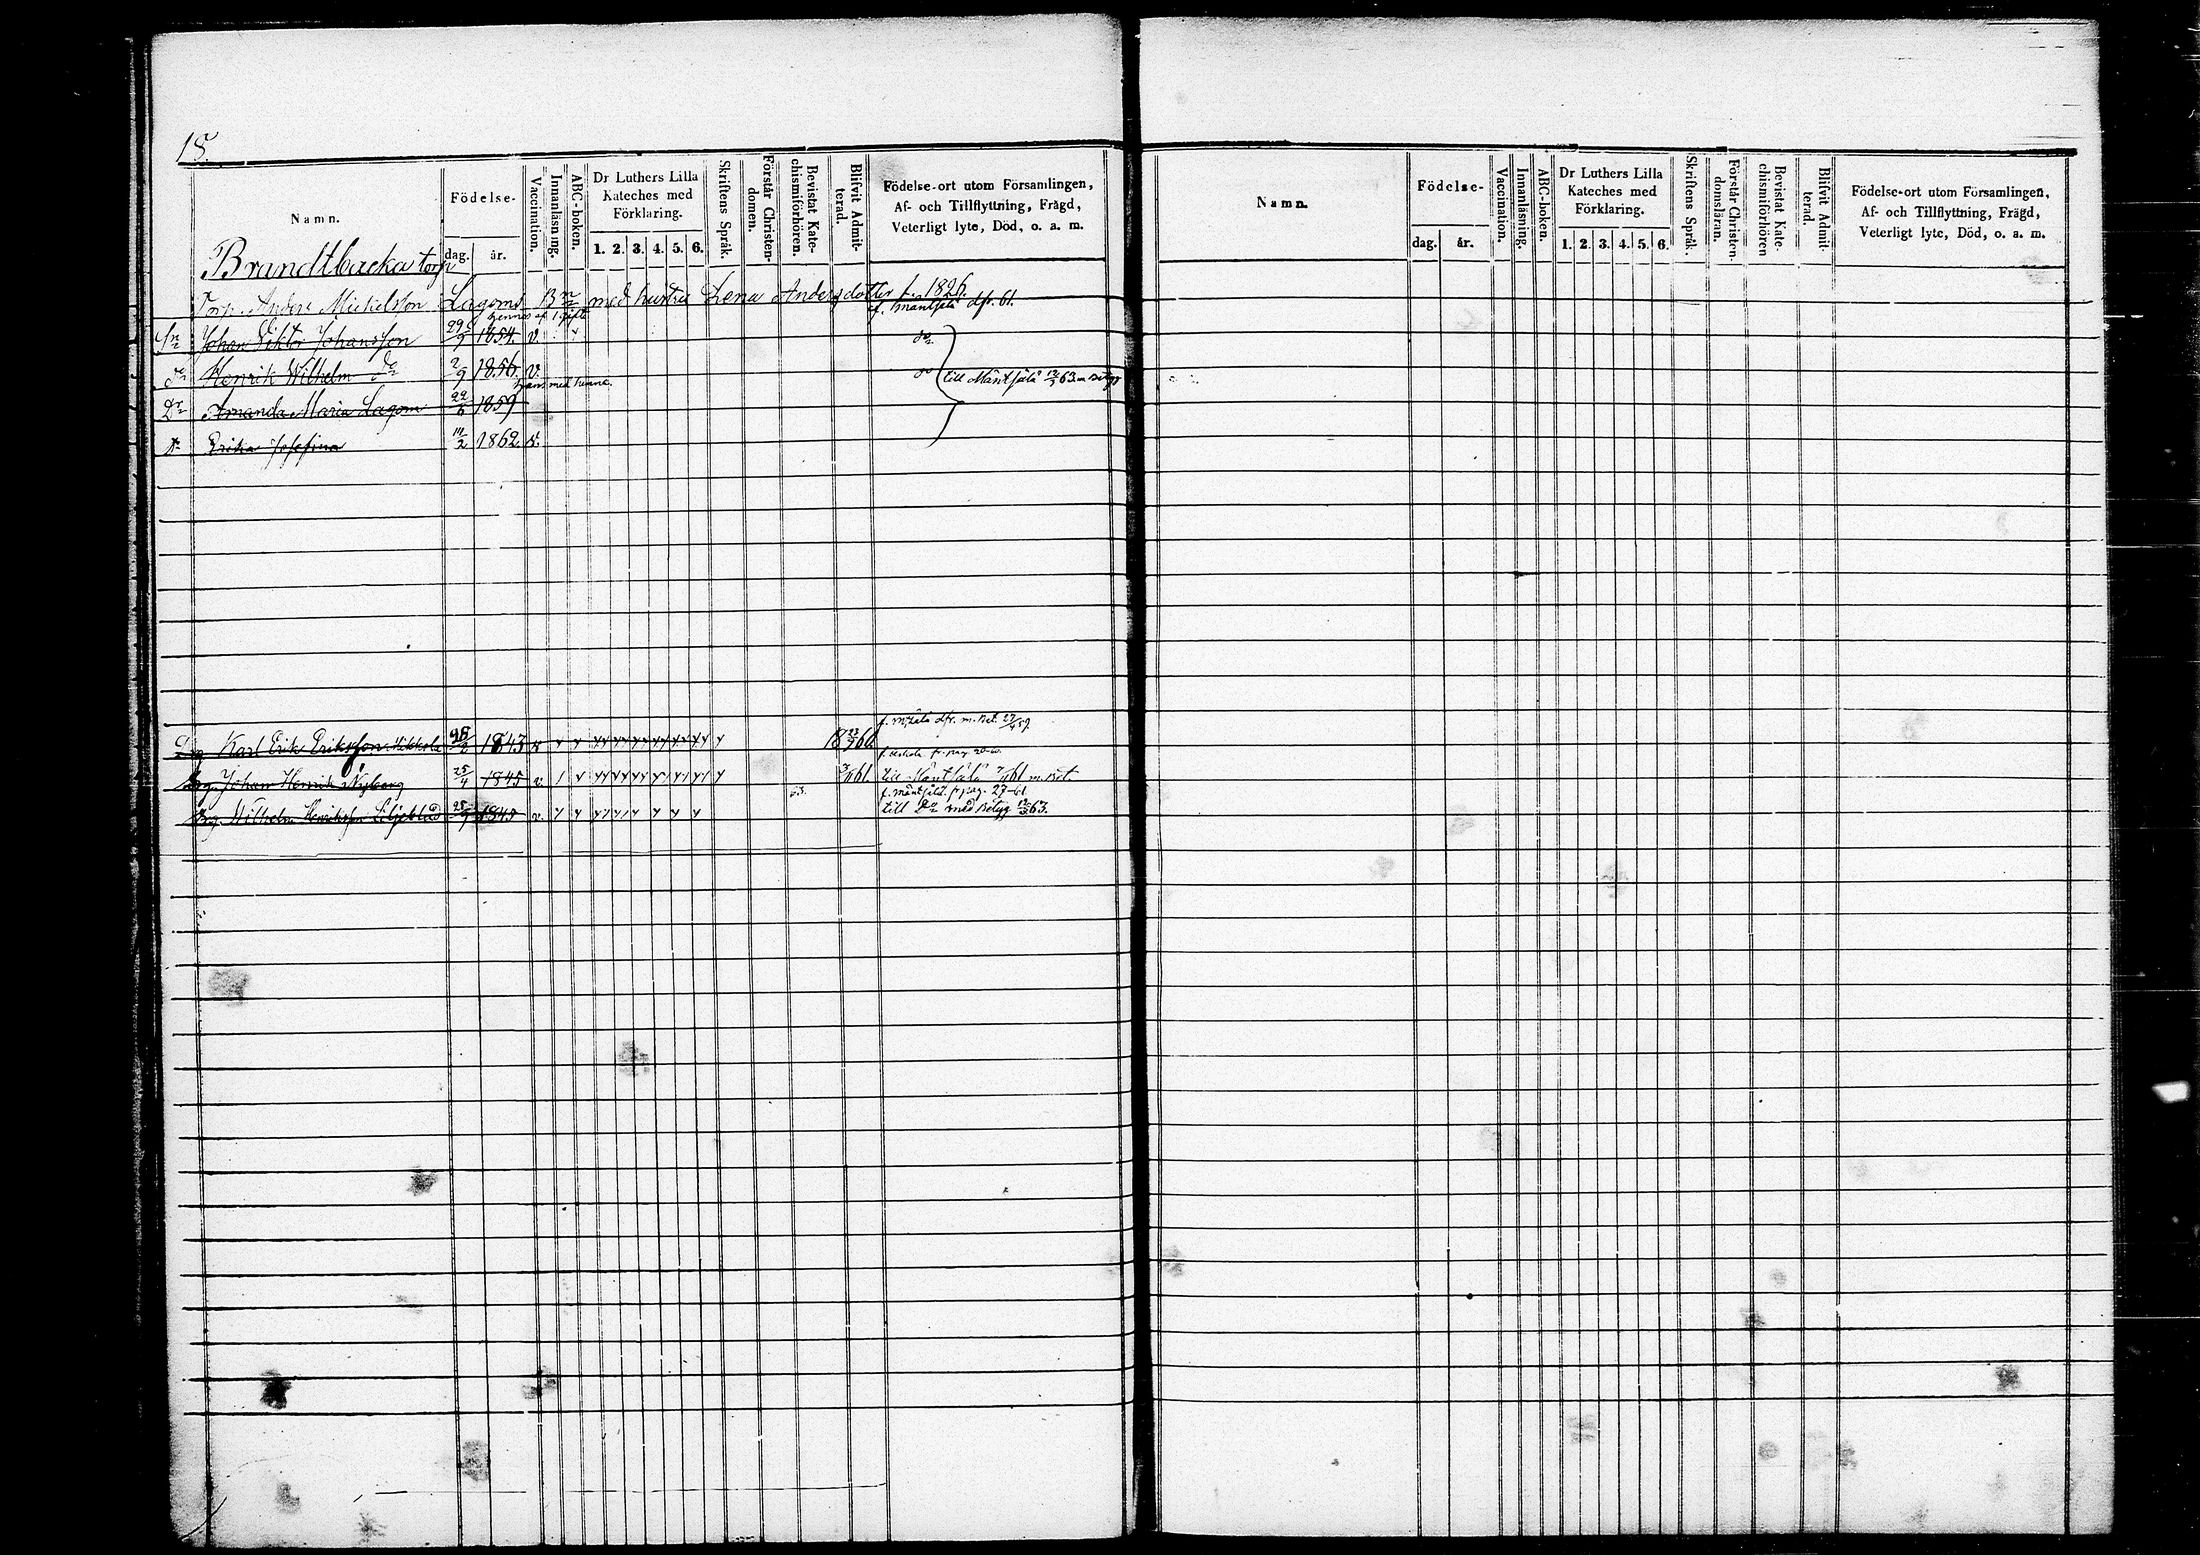 18.
Namn.
Födelse-
dag. år.
Vaccination.
Innanläsning.
ABC-boken.
Dr Luthers Lilla
Kateches med
Förklaring.
1. 2. 3. 4. 5. 6.
Skriftens Språk.
Förstår Christen-
domen.
Bevistat Kate-
chismiförhören.
Blifvit Admit-
terad.
Födelse-ort utom Församlingen,
Af- och Tillflyttning, Frägd,
Veterligt lyte, Död, o. a. m.
Brandtbacka torp
Torp. Anders Mickelsson Lagoms Bn med hustru Lena Andersdotter f. 1826.
hennes af 1 gifte
f. Mäntsälä dfr. 61.
Sn Johan Viktor Johansson 29/9 1854. v. do
do Henrik Wilhelm do 2/9 1856. v. do
hans med henne.
till Mäntsälä 12/3 63 m Betyg
Dr Amanda Maria Lagom 22/6 1859
Erika Josefina 14/2 1862 v.
f. M:tsälä dfr. m. Bet. 27/4 59.
Karl Erik Eriksson 28/2 1843 v 18 23/9 60
fr. pag. 20-60.
Johan Henrik Nyberg 25/4 1845 v. 3/11 61. till Mäntsälä 7/11 61 m. Bet.
63.
f. Mäntsälä. fr pag. 27-61
Wilhelm Henriksson Liljeblad 25/9 1845 v. till Do med Betyg 12/3 63.
Namn.
Födelse-
dag. år.
Vaccination.
Innanläsning.
ABC-boken.
Dr Luthers Lilla
Kateches med
Förklaring.
1. 2. 3. 4. 5. 6.
Skriftens Språk.
Förstår Christen-
domsläran.
Bevistat Kate-
chismiförhören
Blifvit Admit-
terad.
Födelse-ort utom Församlingen,
Af- och Tillflyttning, Frägd,
Veterligt lyte, Död, o. a. m.